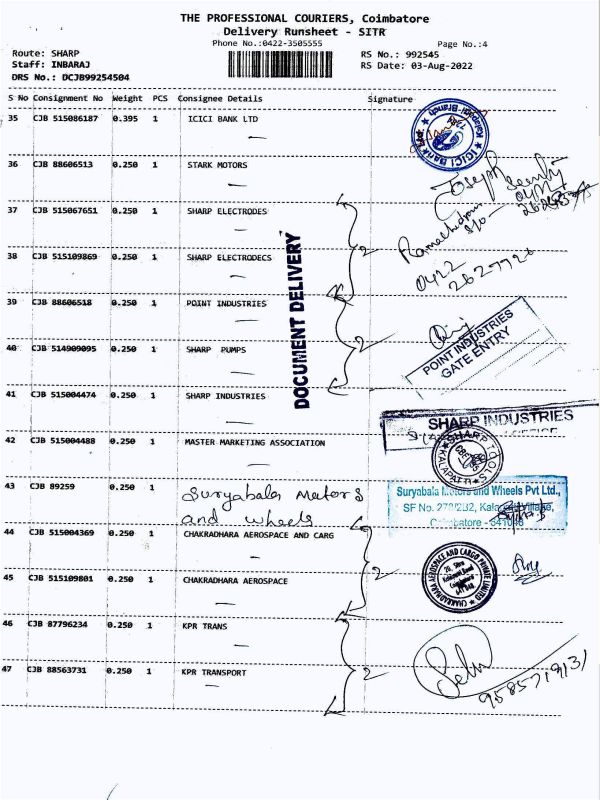 THE PROFESSIONAL COURIERS, Coimbatore
Delivery Runsheet - SITR
Phone No.:0422-3505555
Page No.:4
Route: SHARP
RS No.: 992545
Staff: INBARAJ
RS Date: 03-Aug-2022
DRS No.: DCJB99254504
S No Consignment No Weight PCS Consignee Details Signature
35 CJB 515086187 0.395 1 ICICI BANK LTD
ICICI Bank
36 CJB 88606513 0.250 1 STARK MOTORS
Joseph
37 CJB 515067651 0.250 1 SHARP ELECTRODES
2
38 CJB 515109869 0.250 1 SHARP ELECTRODECS
0422
2627920
DOCUMENT DELIVERY
39 CJB 88606518 0.250 1 POINT INDUSTRIES
2
POINT INDUSTRIES
GATE ENTRY
40 CJB 514909095 0.250 1 SHARP PUMPS
41 CJB 515004474 0.250 1 SHARP INDUSTRIES
SHARP INDUSTRIES
42 CJB 515004488 0.250 1 MASTER MARKETING ASSOCIATION
SHARP TOOLS
KALAPATTI
43 CJB 89259 0.250 1 Suryabala Motors
and wheels
Suryabala Motors and Wheels Pvt Ltd.,
SF No. 272/2B2, Kalapatti Village,
Coimbatore - 641048
44 CJB 515004369 0.250 1 CHAKRADHARA AEROSPACE AND CARG
CHAKRADHARA AEROSPACE AND CARGO PRIVATE LIMITED
2
45 CJB 515109801 0.250 1 CHAKRADHARA AEROSPACE
46 CJB 87796234 0.250 1 KPR TRANS
2
47 CJB 88563731 0.250 1 KPR TRANSPORT